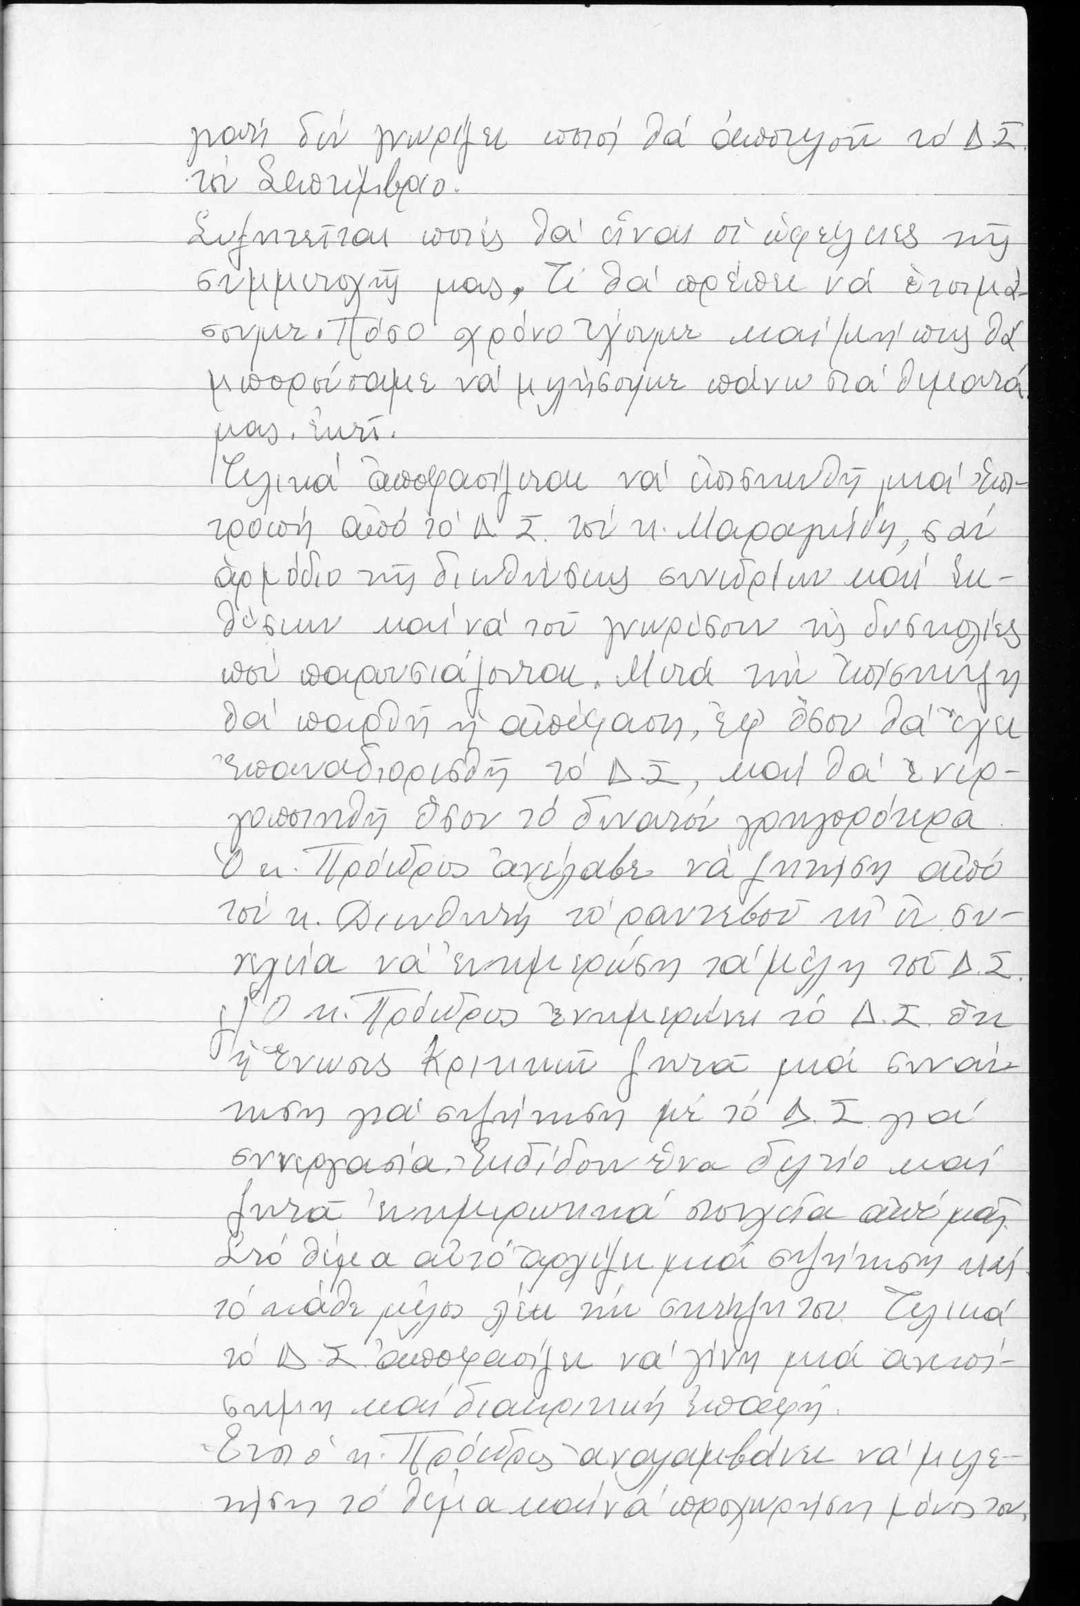 γιατί δέν γνωρίζει ποιοί θά ἀποτελοῦν τό Δ.Σ.
τόν Σεπτέμβριο.
Συζητεῖται ποιές θά εἶναι οἱ ὠφέλειες τῆς
συμμετοχῆς μας. Τί θά πρέπει νά ἑτοιμά-
σουμε. Πόσο χρόνο ἔχουμε καί μήπως θά
μπορούσαμε νά μιλήσουμε πάνω στά θέματά
μας. ἐκεῖ.
Τελικά ἀποφασίζεται νά ἐπισκεφθῆ μιά Ἐπι-
τροπή ἀπό τό Δ.Σ. τόν κ. Μαραγκίδη, σάν
ἁρμόδιο τῆς διευθύνσεως συνεδρίων καί ἐκ-
θέσεων καί νά τοῦ γνωρίσουν τίς δυσκολίες
πού παρουσιάζονται. Μετά τήν ἐπίσκεψη
θά παρθῆ ἡ ἀπόφαση, ἐφ' ὅσον θά ἔχει
ἐπαναδιορισθῆ τό Δ.Σ., καί θά ἐνερ-
γοποιηθῆ ὅσον τό δυνατόν γρηγορότερα.
Ὁ κ. Πρόεδρος ἀνέλαβε νά ζητήση ἀπό
τόν κ. Διευθυντή τό ραντεβού κι' ἐν συ-
νεχεία νά ἐνημερώση τά μέλη τοῦ Δ.Σ.
ζ) Ὁ κ. Πρόεδρος ἐνημερώνει τό Δ.Σ. ὅτι
ἡ Ἕνωσις Κρητικῶν ζητᾶ μιά συνάν-
τηση γιά συζήτηση μέ τό Δ.Σ. γιά
συνεργασία. Ἐκδίδουν ἕνα δελτίο καί
ζητᾶ ἐνημερωτικά στοιχεῖα ἀπό μᾶς.
Στό θέμα αὐτό ἀρχίζει μιά συζήτηση καί
τό κάθε μέλος λέει τήν σκέψη του. Τελικά
τό Δ.Σ. ἀποφασίζει νά γίνη μιά ἀνεπί-
σημη καί διακριτική ἐπαφή.
Ἔτσι ὁ κ. Πρόεδρος ἀναλαμβάνει νά μελε-
τήση τό θέμα καί νά προχωρήση μόνος του.